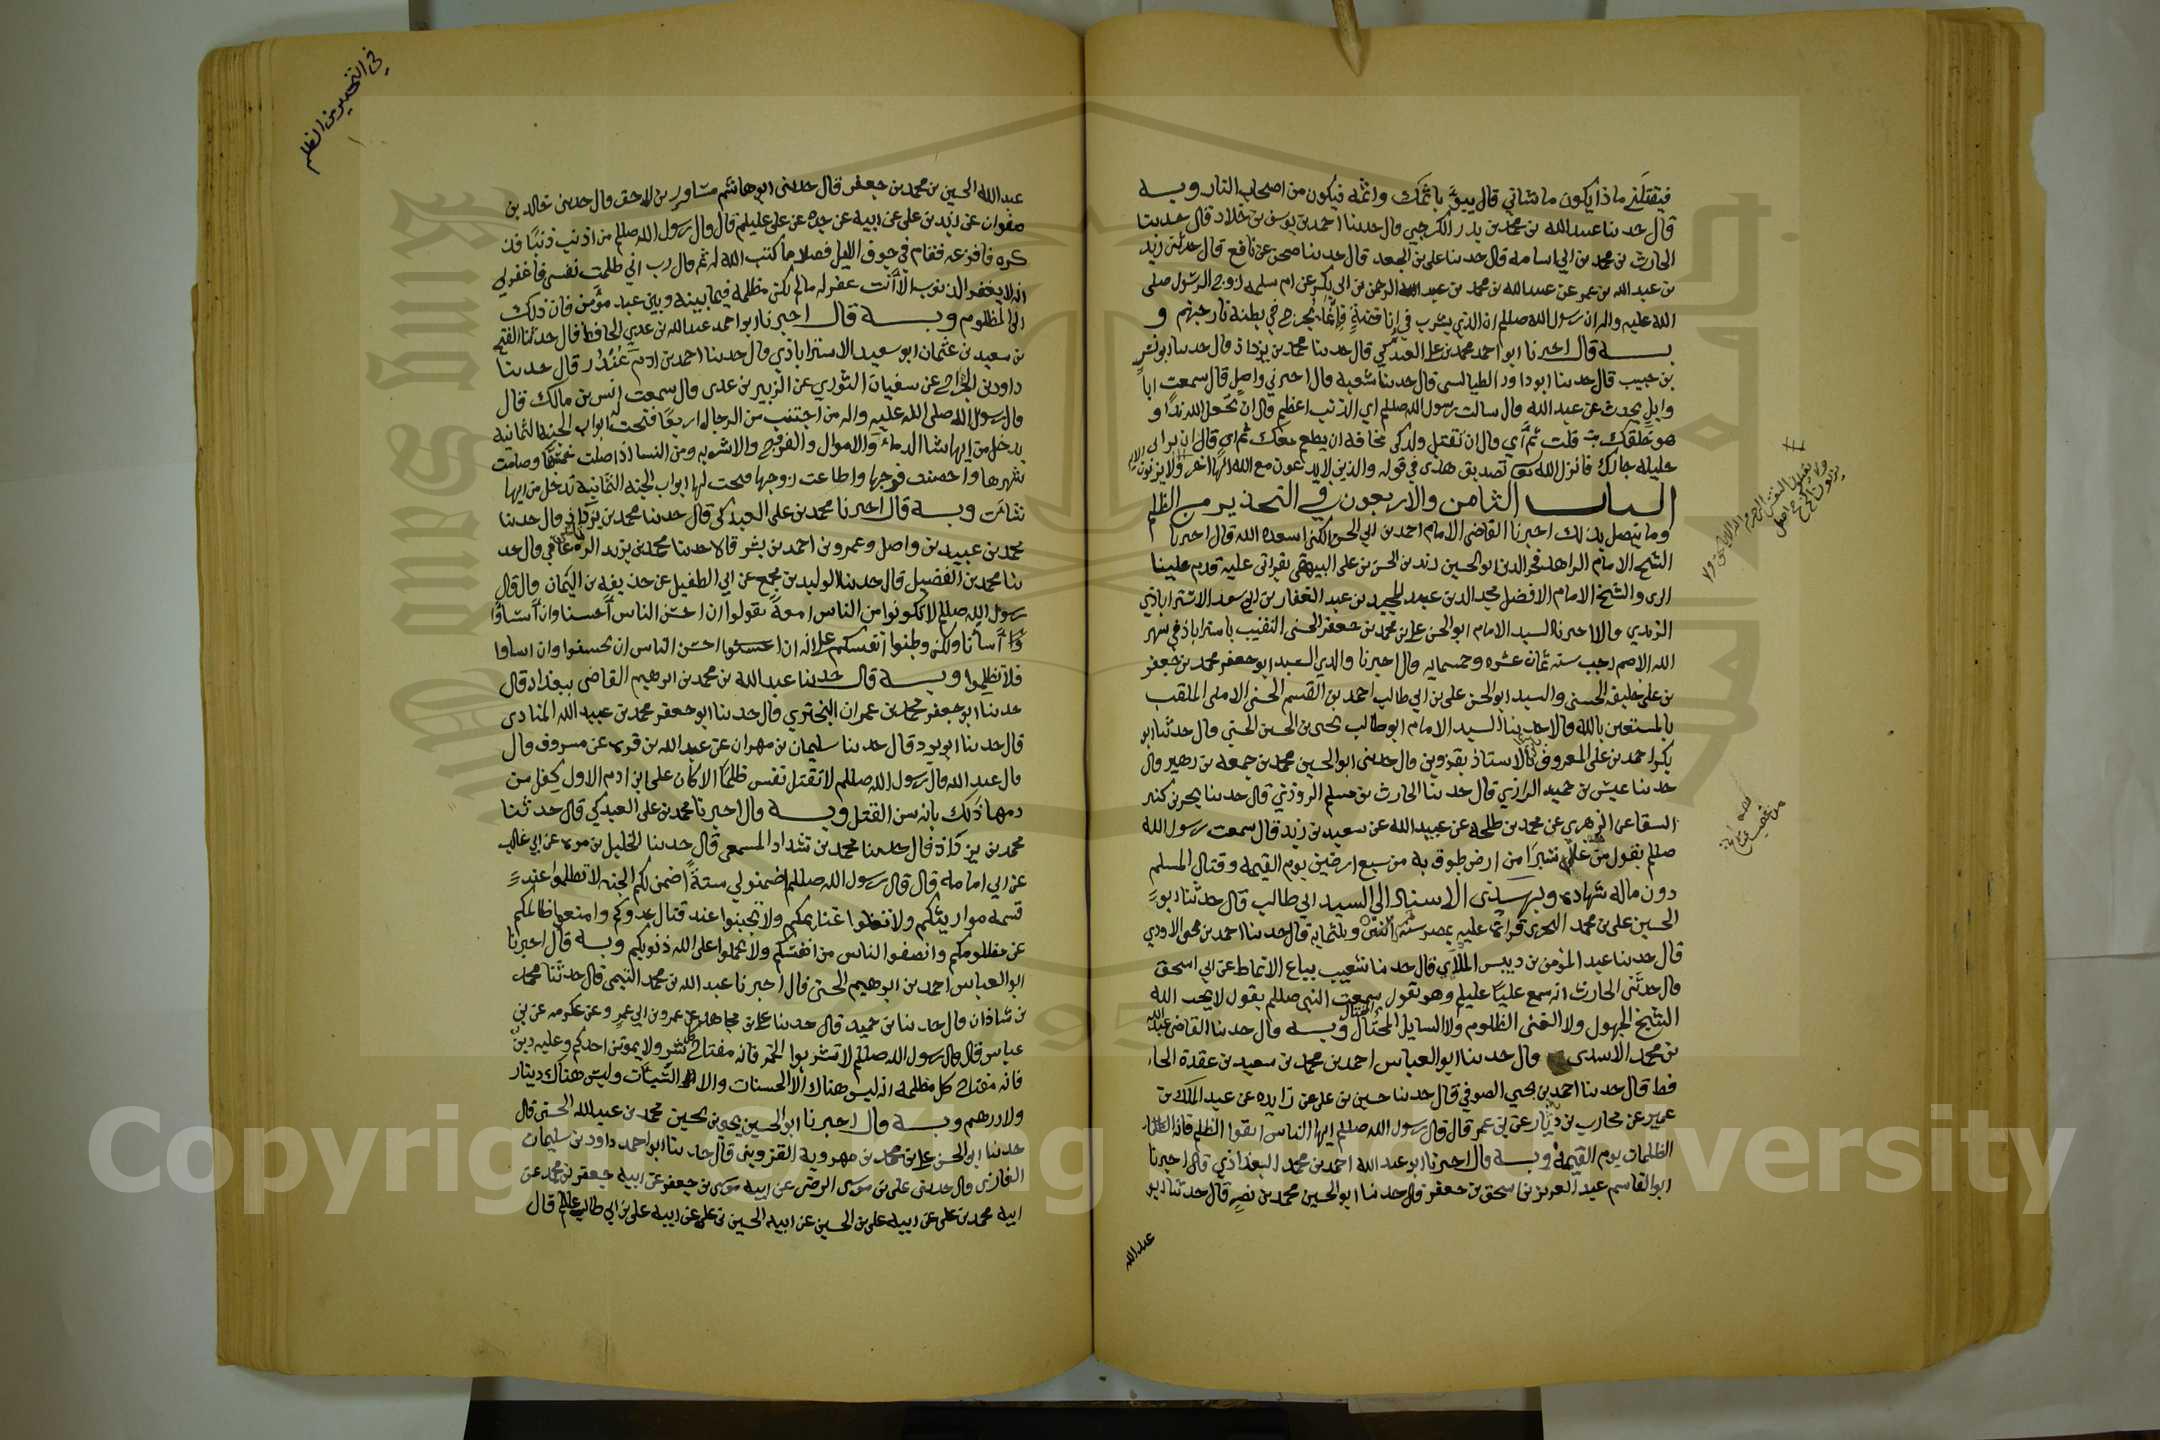 فيقتلني ماذا يكون ما شاني قال يبوّ باثمك واثمه فيكون من اصحاب النار وبه
قال حدثنا عبد الله بن محمد بن بدر الكرجي قال حدثنا احمد بن يوسف بن خلاد قال حدثنا
الحارث بن محمد بن ابي اسامه قال حدثنا علي بن الجعد قال حدثنا صخر عن نافع قال حدثني زيد
بن عبد الله بن عمر عن عبد الله بن محمد بن عبد الرحمن بن ابي بكر عن ام سلمه زوج الرسول صلى
الله عليه واله ان رسول الله صللم ان الذي يشرب في انا فضةٍ فانما يجرجر في بطنه نار جهنم و
بـه قال اخبرنا ابو احمد محمد بن علي العبدكي قال حدثنا محمد بن يزداذ قال حدثنا
بن حبيب قال حدثنا ابو داود الطيالسي قال حدثنا شعبه قال اخبرني واصل قال سمعت ابا
وايل يحدث عن عبد الله قال سالت رسول الله صللم اي الذنب اعظم قال ان تجعل لله ندًا و
هو خلقك قلت ثم اي قال ان تقتل ولدك مخافة ان يطعم معك ثم اي قال ان تزاني
حليلة جارك فانزل الله تصديق هذى في قوله والذين لا يدعون مع الله الها اخر ولا يزنون
البـاب الثامن والاربعون في التحذير من الظلم
وما يتصل بذلك اخبرنا القاضي الامام احمد بن ابي الحسن الكني اسعده الله قال اخبرنا
الشيخ الامام الزاهد فخر الدين ابو الحسين زيد بن الحسن بن علي البيهقي بقراتي عليه قدم علينا
الري والشيخ الامام الافضل مجد الدين عبد المجيد بن عبد الغفار بن ابي سعد الاستراباذي
الزيدي قالا اخبرنا السيد الامام ابو الحسن علي بن محمد بن جعفر الحسني النقيب باستراباذ في شهر
الله الاصم رجب سنة ثمان عشره وخمسمايه قال اخبرنا والدي السيد ابو جعفر محمد بن جعفر
بن علي خليفه الحسني والسيد ابو الحسن علي بن ابي طالب احمد بن القسم الحسني الاملي الملقب
بالمستعين بالله قالا حدثنا السيد الامام ابو طالب يحيى بن الحسين الحسني قال حدثنا ابو
بكر احمد بن علي المعروف بالاستاذ بقزوين قال حدثني ابو الحسين محمد بن جمعه بن زهير قال
حدثنا عيسى بن حميد الرازي قال حدثنا الحارث بن مسلم الروذي قال حدثنا بحر بن كنيز
السقا عن الزهري عن محمد بن طلحه عن عبيد الله عن سعيد بن زيد قال سمعت رسول الله
صللم يقول من شبرًا من ارض طوق به من سبع ارضين يوم القيمه وقتال المسلم
دون ماله شهاده وبهـذى الاسناد الى السيد ابي طالب قال حدثنا ابو
الحسين علي بن محمد البحري قراةً عليه بمصر وثلثمايه قال حدثنا احمد بن محمد الاودي
قال حدثنا عبد المؤمن بن دبيس الملاي قال حدثنا شعيب بياع الانماط عن ابي اسحق
قال حدثني الحارث انه سمع عليًا عليلم وهو يقول سمعت النبي صللم يقول لا يحب الله
الشيخ الجهول ولا الغني الظلوم ولا السايل المختال وبه قال حدثنا القاضي عبد الله
بن محمد الاسدي قال حدثنا ابو العباس احمد بن محمد بن سعيد بن عقدة الحا
فظ قال حدثنا احمد بن يحيى الصوفي قال حدثنا حسين بن علي عن زايده عن عبد الملك بن
عمير عن محارب بن دثار عن بن عمر قال قال رسول الله صللم ايها الناس اتقوا الظلم فانه
الظلمات يوم القيمه وبـه قال اخبرنا ابو عبد الله احمد بن محمد البغداذي قال اخبرنا
ابو القاسم عبد العزيز بن اسحق بن جعفر قال حدثنا ابو الحسين محمد بن نصر قال حدثنا ابو
عبد الله
من غصب
في التحذير من الظلم
عبد الله الحسين بن محمد بن جعفر قال حدثني ابو هاشم مساور بن لاحق قال حدثني خالد بن
صفوان عن زيد بن علي عن ابيه عن جده عن علي عليلم قال قال رسول الله صللم من اذنب ذنبًا فذ
كره فافزعه فقام في جوف الليل فصلا ما كتب الله له ثم قال رب اني ظلمت نفسي فاغفر لي
انه لا يغفر الذنوب الا انت غفر له ما لم يكن مظلمه فيما بينه وبين عبد مؤمن فان ذلك
الى المظلوم وبـه قال اخبرنا ابو احمد عبد الله بن عدي الحافظ قال حدثنا الفتح
بن سعيد بن عثمان ابو سعيد الاستراباذي قال حدثنا احمد بن ادم غُندُر قال حدثنا
داود بن الجراح عن سفيان الثوري عن الزبير بن عدي قال سمعت انس بن مالك قال
قال رسول الله صلى الله عليه واله من اجتنب من الرجال اربعًا فتحت له ابواب الجنه الثمانيه
يدخل من ايها شا الدما والاموال والفروج والاشربه ومن النسا اذا صلت خمسها وصامت
شهرها واحصنت فرجها واطاعت زوجها فتحت لها ابواب الجنه الثمانيه تدخل من ايها
شات وبـه قال اخبرنا محمد بن علي العبدكي قال حدثنا محمد بن يزداذ قال حدثنا
محمد بن عبيد بن واصل وعمرو بن احمد بن بشر قالا حدثنا محمد بن يزيد الرفاعي قال حد
ثنا محمد بن الفضيل قال حدثنا الوليد بن جميع عن ابي الطفيل عن حذيفه بن اليمان قال قال
رسول الله صللم لا تكونوا من الناس امعةً تقولوا ان احسن الناس احسنا وان اساؤا
اسانا ولكن وطنوا انفسكم على انه ان احسن الناس ان تحسنوا وان اساوا
فلا تظلموا وبـه قال حدثنا عبد الله بن محمد بن ابرهيم القاضي ببغداد قال
حدثنا ابو جعفر محمد بن عمران البختري قال حدثنا ابو جعفر محمد بن عبيد الله المنادي
قال حدثنا ابو بدر قال حدثنا سليمان بن مهران عن عبد الله بن مره عن مسروف قال
قال عبد الله قال رسول الله صللم لا تقتل نفس ظلمًا الا كان على ابن ادم الاول كفل من
دمها ذلك بانه سن القتل وبـه قال اخبرنا محمد بن علي العبدكي قال حدثنا
محمد بن يزداذ قال حدثنا محمد بن شداد المسمعي قال حدثنا الخليل بن مره عن ابي غالب
عن ابي امامه قال قال رسول الله صللم اضمنوا لي ستةً اضمن لكم الجنه لا تظلموا عند
قسمه مواريثكم ولا تغلوا غنايمكم ولا تجبنوا عند قتال عدوكم وامنعوا ظالمكم
عن مظلومكم وانصفوا الناس من انفسكم ولا تحملوا على الله ذنوبكم وبـه قال اخبرنا
ابو العباس احمد بن ابرهيم الحسني قال اخبرنا عبد الله بن محمد التيمي قال حدثنا محمد
بن شاذان قال حدثنا بن حميد قال حدثنا علي بن مجاهد عن عمرو بن ابي عمر وعن عكرمه عن بن
عباس قال قال رسول الله صللم لا تشربوا الخمر فانه مفتاح كل شر ولا يموتن احدكم وعليه دين
فانه مفتاح كل مظلمه انه ليس هناك الا الحسنات والا السيئات وليس هناك دينار
ولا درهم وبـه قال اخبرنا ابو الحسين يحيى بن الحسين محمد بن عبيد الله الحسني قال
حدثنا ابو الحسن علي بن محمد بن مهرويه القزويني قال حدثنا ابو احمد داود بن سليمان
الغازي قال حدثني علي بن موسى الرضى عن ابيه موسى بن جعفر عن ابيه جعفر بن محمد عن
ابيه محمد بن علي عن ابيه علي بن الحسين عن ابيه الحسين بن علي عن ابيه علي بن ابي طالب عللم قال
Copyright © King Saud University
1957